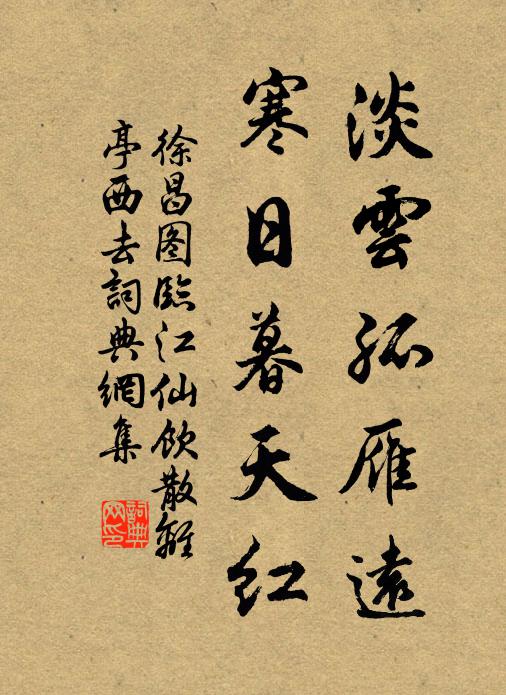 淡雲孤雁遠
寒日暮天紅
徐昌图臨江仙飲散離
亭西去詞典網集
詞典
网印